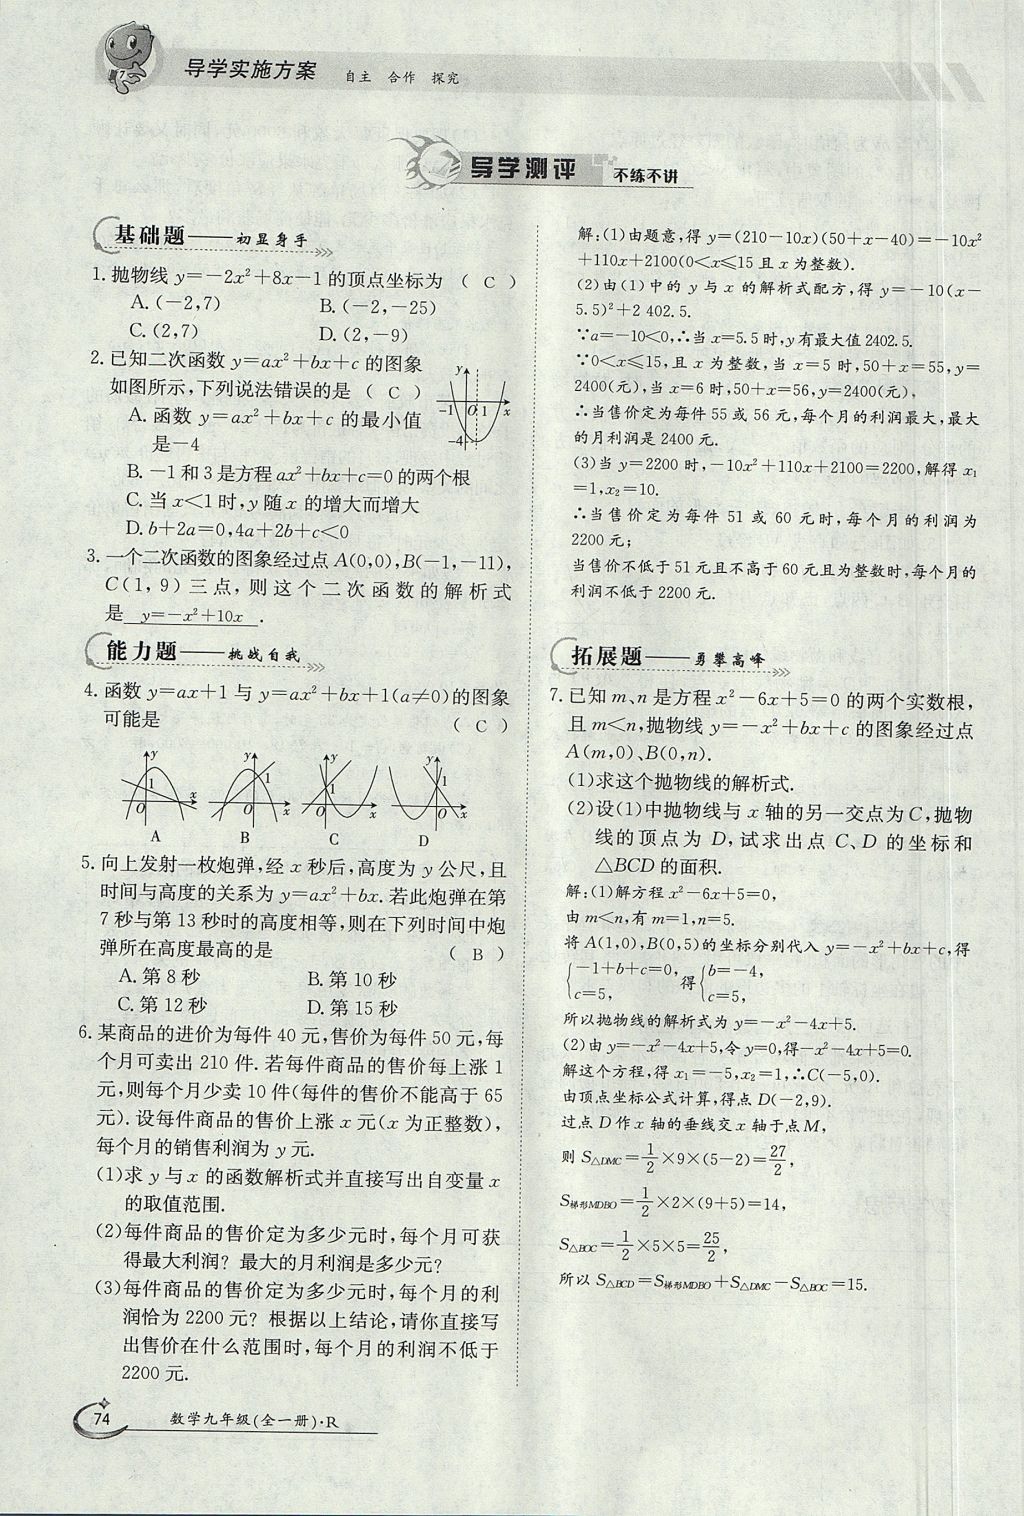 导学实施方案 自主 合作 探究
导学测评 不练不讲
基础题——初显身手
1. 抛物线 y=-2x²+8x-1 的顶点坐标为 ( C )
A. (-2,7) B. (-2,-25)
C. (2,7) D. (2,-9)
2. 已知二次函数 y=ax²+bx+c 的图象
如图所示,下列说法错误的是 ( C )
A. 函数 y=ax²+bx+c 的最小值
是-4
B. -1 和 3 是方程 ax²+bx+c=0 的两个根
C. 当 x<1 时,y 随 x 的增大而增大
D. b+2a=0,4a+2b+c<0
y
-1 O 1 x
-4
3. 一个二次函数的图象经过点 A(0,0),B(-1,-11),
C(1,9) 三点,则这个二次函数的解析式
是 y=-x²+10x .
能力题——挑战自我
4. 函数 y=ax+1 与 y=ax²+bx+1(a≠0)的图象
可能是 ( C )
y y y y
1 1 1 1
O x O x O x O x
A B C D
5. 向上发射一枚炮弹,经 x 秒后,高度为 y 公尺,且
时间与高度的关系为 y=ax²+bx. 若此炮弹在第
7 秒与第 13 秒时的高度相等,则在下列时间中炮
弹所在高度最高的是 ( B )
A. 第 8 秒 B. 第 10 秒
C. 第 12 秒 D. 第 15 秒
6. 某商品的进价为每件 40 元,售价为每件 50 元,每
个月可卖出 210 件. 若每件商品的售价每上涨 1
元,则每个月少卖 10 件(每件的售价不能高于 65
元). 设每件商品的售价上涨 x 元(x 为正整数),
每个月的销售利润为 y 元.
(1)求 y 与 x 的函数解析式并直接写出自变量 x
的取值范围.
(2)每件商品的售价定为多少元时,每个月可获
得最大利润? 最大的月利润是多少元?
(3)每件商品的售价定为多少元时,每个月的利
润恰为 2200 元? 根据以上结论,请你直接写
出售价在什么范围时,每个月的利润不低于
2200 元.
解:(1)由题意,得 y=(210-10x)(50+x-40)=-10x²
+110x+2100(0<x≤15 且 x 为整数).
(2)由(1)中的 y 与 x 的解析式配方,得 y=-10(x-
5.5)²+2 402.5.
∵a=-10<0,∴当 x=5.5 时,y 有最大值 2402.5.
∵0<x≤15,且 x 为整数,当 x=5 时,50+x=55,y=
2400(元),当 x=6 时,50+x=56,y=2400(元),
∴当售价定为每件 55 或 56 元,每个月的利润最大,最大
的月利润是 2400 元.
(3)当 y=2200 时,-10x²+110x+2100=2200,解得 x₁
=1,x₂=10.
∴当售价定为每件 51 或 60 元时,每个月的利润为
2200 元;
当售价不低于 51 元且不高于 60 元且为整数时,每个月的
利润不低于 2200 元.
拓展题——勇攀高峰
7. 已知 m、n 是方程 x²-6x+5=0 的两个实数根,
且 m<n,抛物线 y=-x²+bx+c 的图象经过点
A(m,0)、B(0,n).
(1)求这个抛物线的解析式.
(2)设(1)中抛物线与 x 轴的另一交点为 C,抛物
线的顶点为 D,试求出点 C、D 的坐标和
△BCD 的面积.
解:(1)解方程 x²-6x+5=0,
由 m<n,有 m=1,n=5.
将 A(1,0),B(0,5)的坐标分别代入 y=-x²+bx+c,得
{-1+b+c=0, 得 {b=-4,
c=5, c=5,
所以抛物线的解析式为 y=-x²-4x+5.
(2)由 y=-x²-4x+5,令 y=0,得-x²-4x+5=0.
解这个方程,得 x₁=-5,x₂=1,∴C(-5,0).
由顶点坐标公式计算,得点 D(-2,9).
过点 D 作 x 轴的垂线交 x 轴于点 M,
则 S△DMC=1/2×9×(5-2)=27/2,
S梯形MDBO=1/2×2×(9+5)=14,
S△BOC=1/2×5×5=25/2,
所以 S△BCD=S梯形MDBO+S△DMC-S△BOC=15.
74 数学九年级(全一册)·R